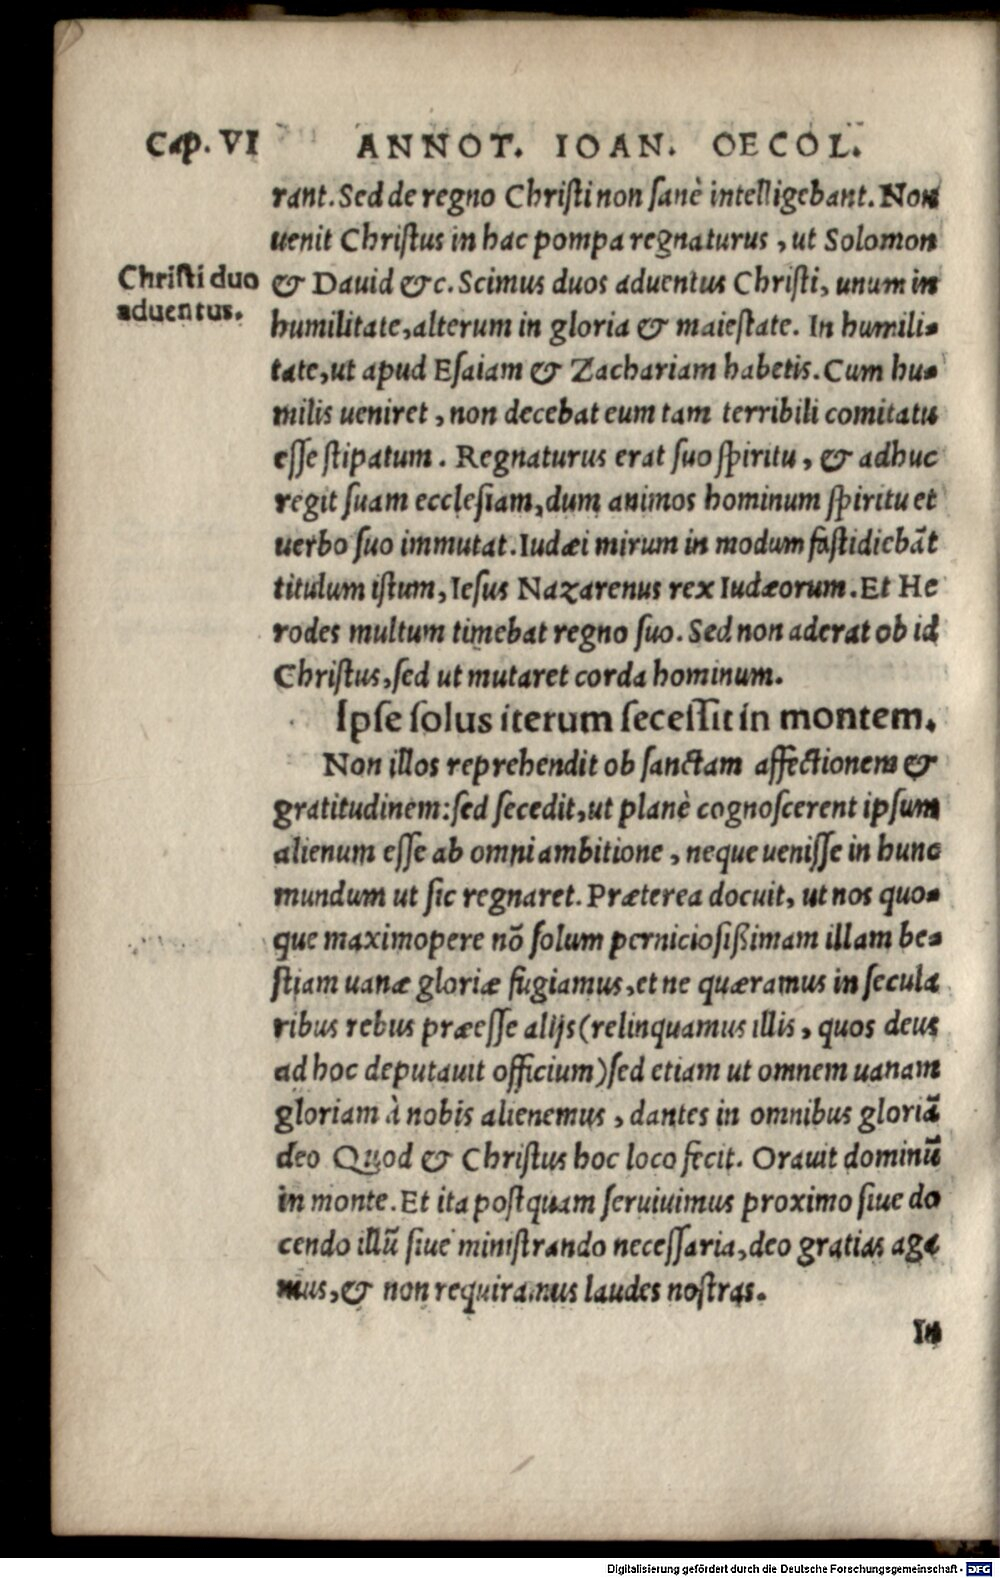 Cap. VI ANNOT. IOAN. OECOL.
rant. Sed de regno Christi non sanè intelligebant. Non
uenit Christus in hac pompa regnaturus, ut Solomon
Christi duo
aduentus.
& Dauid &c. Scimus duos aduentus Christi, unum in
humilitate, alterum in gloria & maiestate. In humili-
tate, ut apud Esaiam & Zachariam habetis. Cum hu-
milis ueniret, non decebat eum tam terribili comitatu
esse stipatum. Regnaturus erat suo spiritu, & adhuc
regit suam ecclesiam, dum animos hominum spiritu et
uerbo suo immutat. Iudæi mirum in modum fastidiebãt
titulum istum, Iesus Nazarenus rex Iudæorum. Et He
rodes multum timebat regno suo. Sed non aderat ob id
Christus, sed ut mutaret corda hominum.
Ipse solus iterum secessit in montem.
Non illos reprehendit ob sanctam affectionem &
gratitudinem: sed secedit, ut planè cognoscerent ipsum
alienum esse ab omni ambitione, neque uenisse in hunc
mundum ut sic regnaret. Præterea docuit, ut nos quo-
que maximopere nõ solum perniciosißimam illam be-
stiam uanæ gloriæ fugiamus, et ne quæramus in secula
ribus rebus præesse alijs (relinquamus illis, quos deus
ad hoc deputauit officium) sed etiam ut omnem uanam
gloriam à nobis alienemus, dantes in omnibus gloriã
deo Quod & Christus hoc loco fecit. Orauit dominũ
in monte. Et ita postquam seruiuimus proximo siue do
cendo illũ siue ministrando necessaria, deo gratias aga
mus, & non requiramus laudes nostras.
In
Digitalisierung gefördert durch die Deutsche Forschungsgemeinschaft - DFG